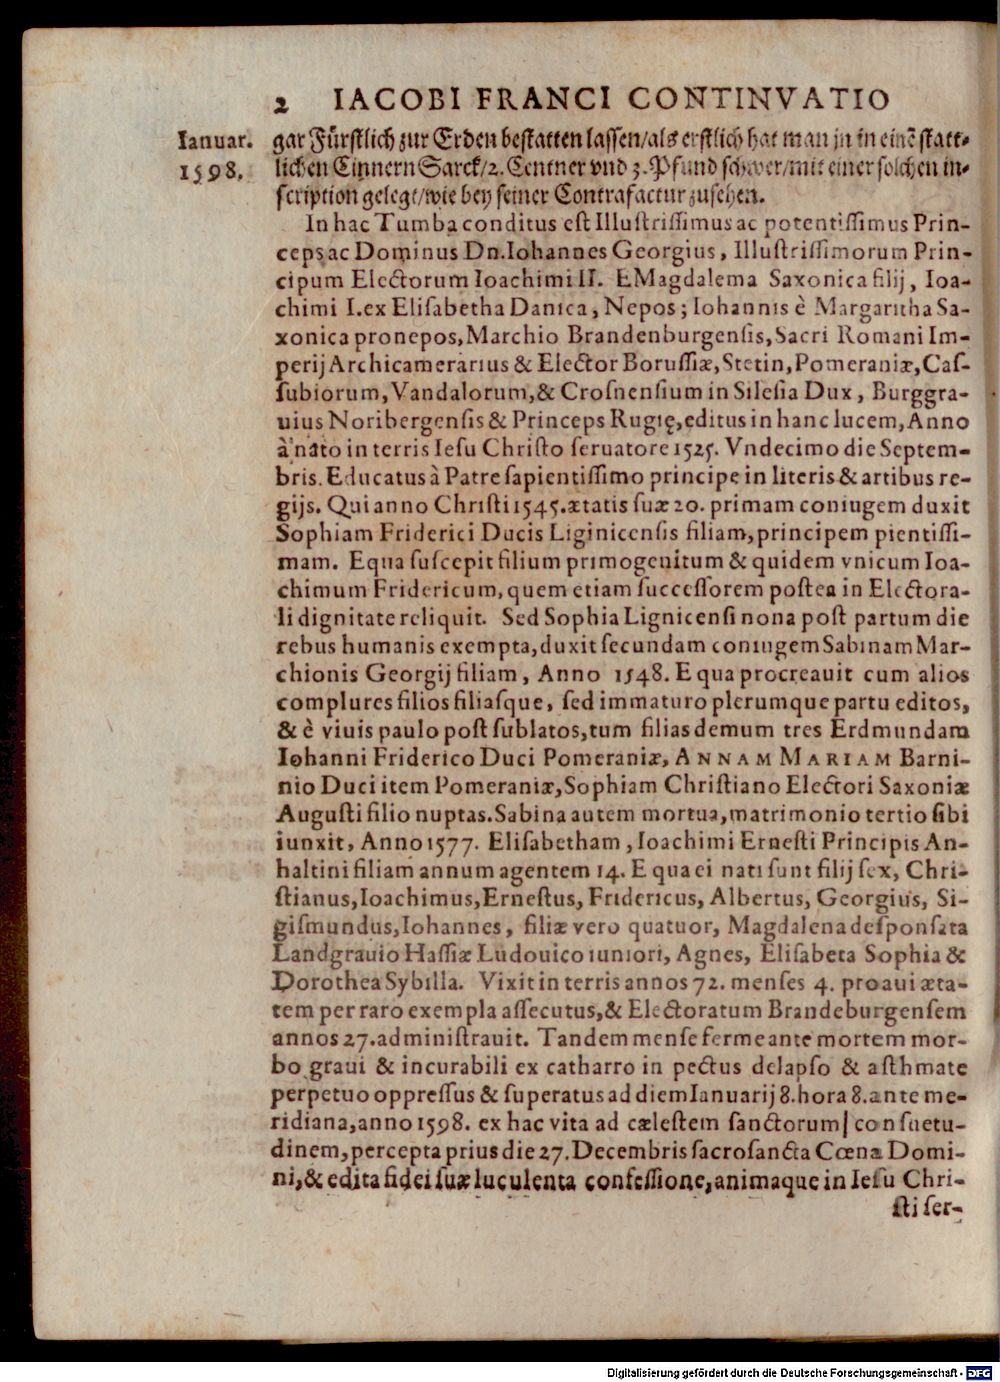 2 IACOBI FRANCI CONTINVATIO
Ianuar.
1598.
gar Fürstlich zur Erden bestatten lassen/als erstlich hat man jn in einē statt-
lichen Cinnern Sarck/2. Centner vnd 3. Pfund schwer/mit einer solchen in-
scription gelegt/wie bey seiner Contrafactur zusehen.
In hac Tumba conditus est Illustrissimus ac potentissimus Prin-
ceps ac Dominus Dn. Iohannes Georgius, Illustrissimorum Prin-
cipum Electorum Ioachimi II. E Magdalema Saxonica filij, Ioa-
chimi I. ex Elisabetha Danica, Nepos; Iohannis è Margaritha Sa-
xonica pronepos, Marchio Brandenburgensis, Sacri Romani Im-
perij Archicamerarius & Elector Borussiæ, Stetin, Pomeraniæ, Cas-
subiorum, Vandalorum, & Crosnensium in Silesia Dux, Burggra-
uius Noribergensis & Princeps Rugię, editus in hanc lucem, Anno
à nato in terris Iesu Christo seruatore 1525. Vndecimo die Septem-
bris. Educatus à Patre sapientissimo principe in literis & artibus re-
gijs. Qui anno Christi 1545. ætatis suæ 20. primam coniugem duxit
Sophiam Friderici Ducis Liginicensis filiam, principem pientissi-
mam. E qua suscepit filium primogenitum & quidem vnicum Ioa-
chimum Fridericum, quem etiam successorem postea in Electora-
li dignitate reliquit. Sed Sophia Lignicensi nona post partum die
rebus humanis exempta, duxit secundam coniugem Sabinam Mar-
chionis Georgij filiam, Anno 1548. E qua procreauit cum alios
complures filios filiasque, sed immaturo plerumque partu editos,
& è viuis paulo post sublatos, tum filias demum tres Erdmundam
Iohanni Friderico Duci Pomeraniæ, ANNAM MARIAM Barni-
nio Duci item Pomeraniæ, Sophiam Christiano Electori Saxoniæ
Augusti filio nuptas. Sabina autem mortua, matrimonio tertio sibi
iunxit, Anno 1577. Elisabetham, Ioachimi Ernesti Principis An-
haltini filiam annum agentem 14. E qua ei nati sunt filij sex, Chri-
stianus, Ioachimus, Ernestus, Fridericus, Albertus, Georgius, Si-
gismundus, Iohannes, filiæ vero quatuor, Magdalena desponsata
Landgrauio Hassiæ Ludouico iuniori, Agnes, Elisabeta Sophia &
Dorothea Sybilla. Vixit in terris annos 72. menses 4. proaui æta-
tem per raro exempla assecutus, & Electoratum Brandeburgensem
annos 27. administrauit. Tandem mense ferme ante mortem mor-
bo graui & incurabili ex catharro in pectus delapso & asthmate
perpetuo oppressus & superatus ad diem Ianuarij 8. hora 8. ante me-
ridiana, anno 1598. ex hac vita ad cælestem sanctorum | consuetu-
dinem, percepta prius die 27. Decembris sacrosancta Cœna Domi-
ni, & edita fidei suæ luculenta confessione, animaque in Iesu Chri-
sti ser-
Digitalisierung gefördert durch die Deutsche Forschungsgemeinschaft - DFG